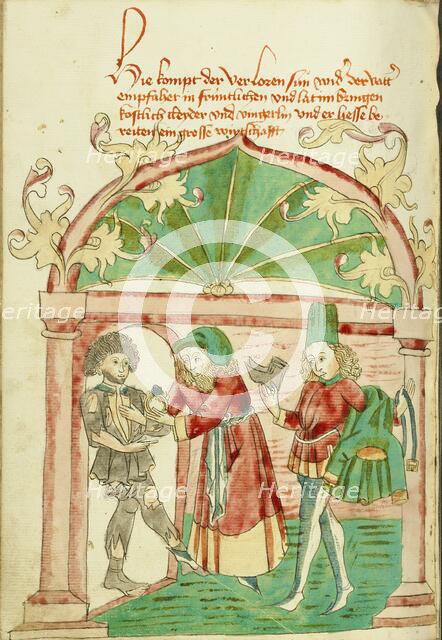 Hie kompt der verloren sun wid' der vatt'
empfaher in früntlichen und lat im bringen
kostlich kleder und vingerlin und er liesse be
reiten ein grosse wirtschafft
Heritage
Heritage
Heritage
Heritage
Heritage
Heritage
Heritage
Heritage